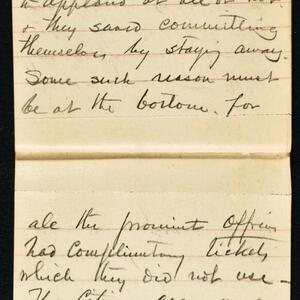 to applaud at all or not.
& they saved committing
themselves by staying away.
Some such reason must
be at the bottom. for
ale the prominent Officers
had Complimentary tickets
which they did not use -
The City